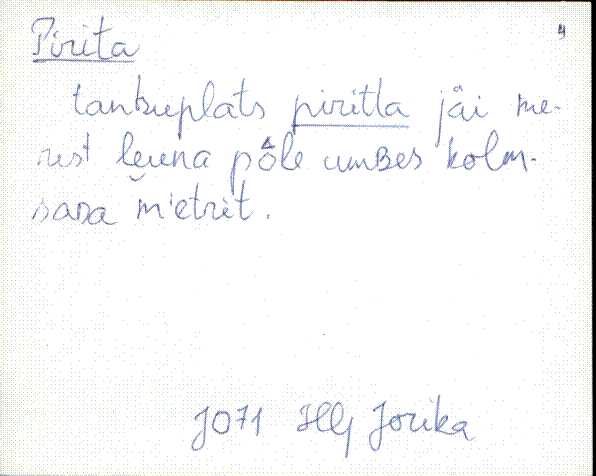 Pirita
4
tankuplats piritta jäi me-
rest leuna põle umbes kolm-
sada mietrit.
J071 Hlj Jorika